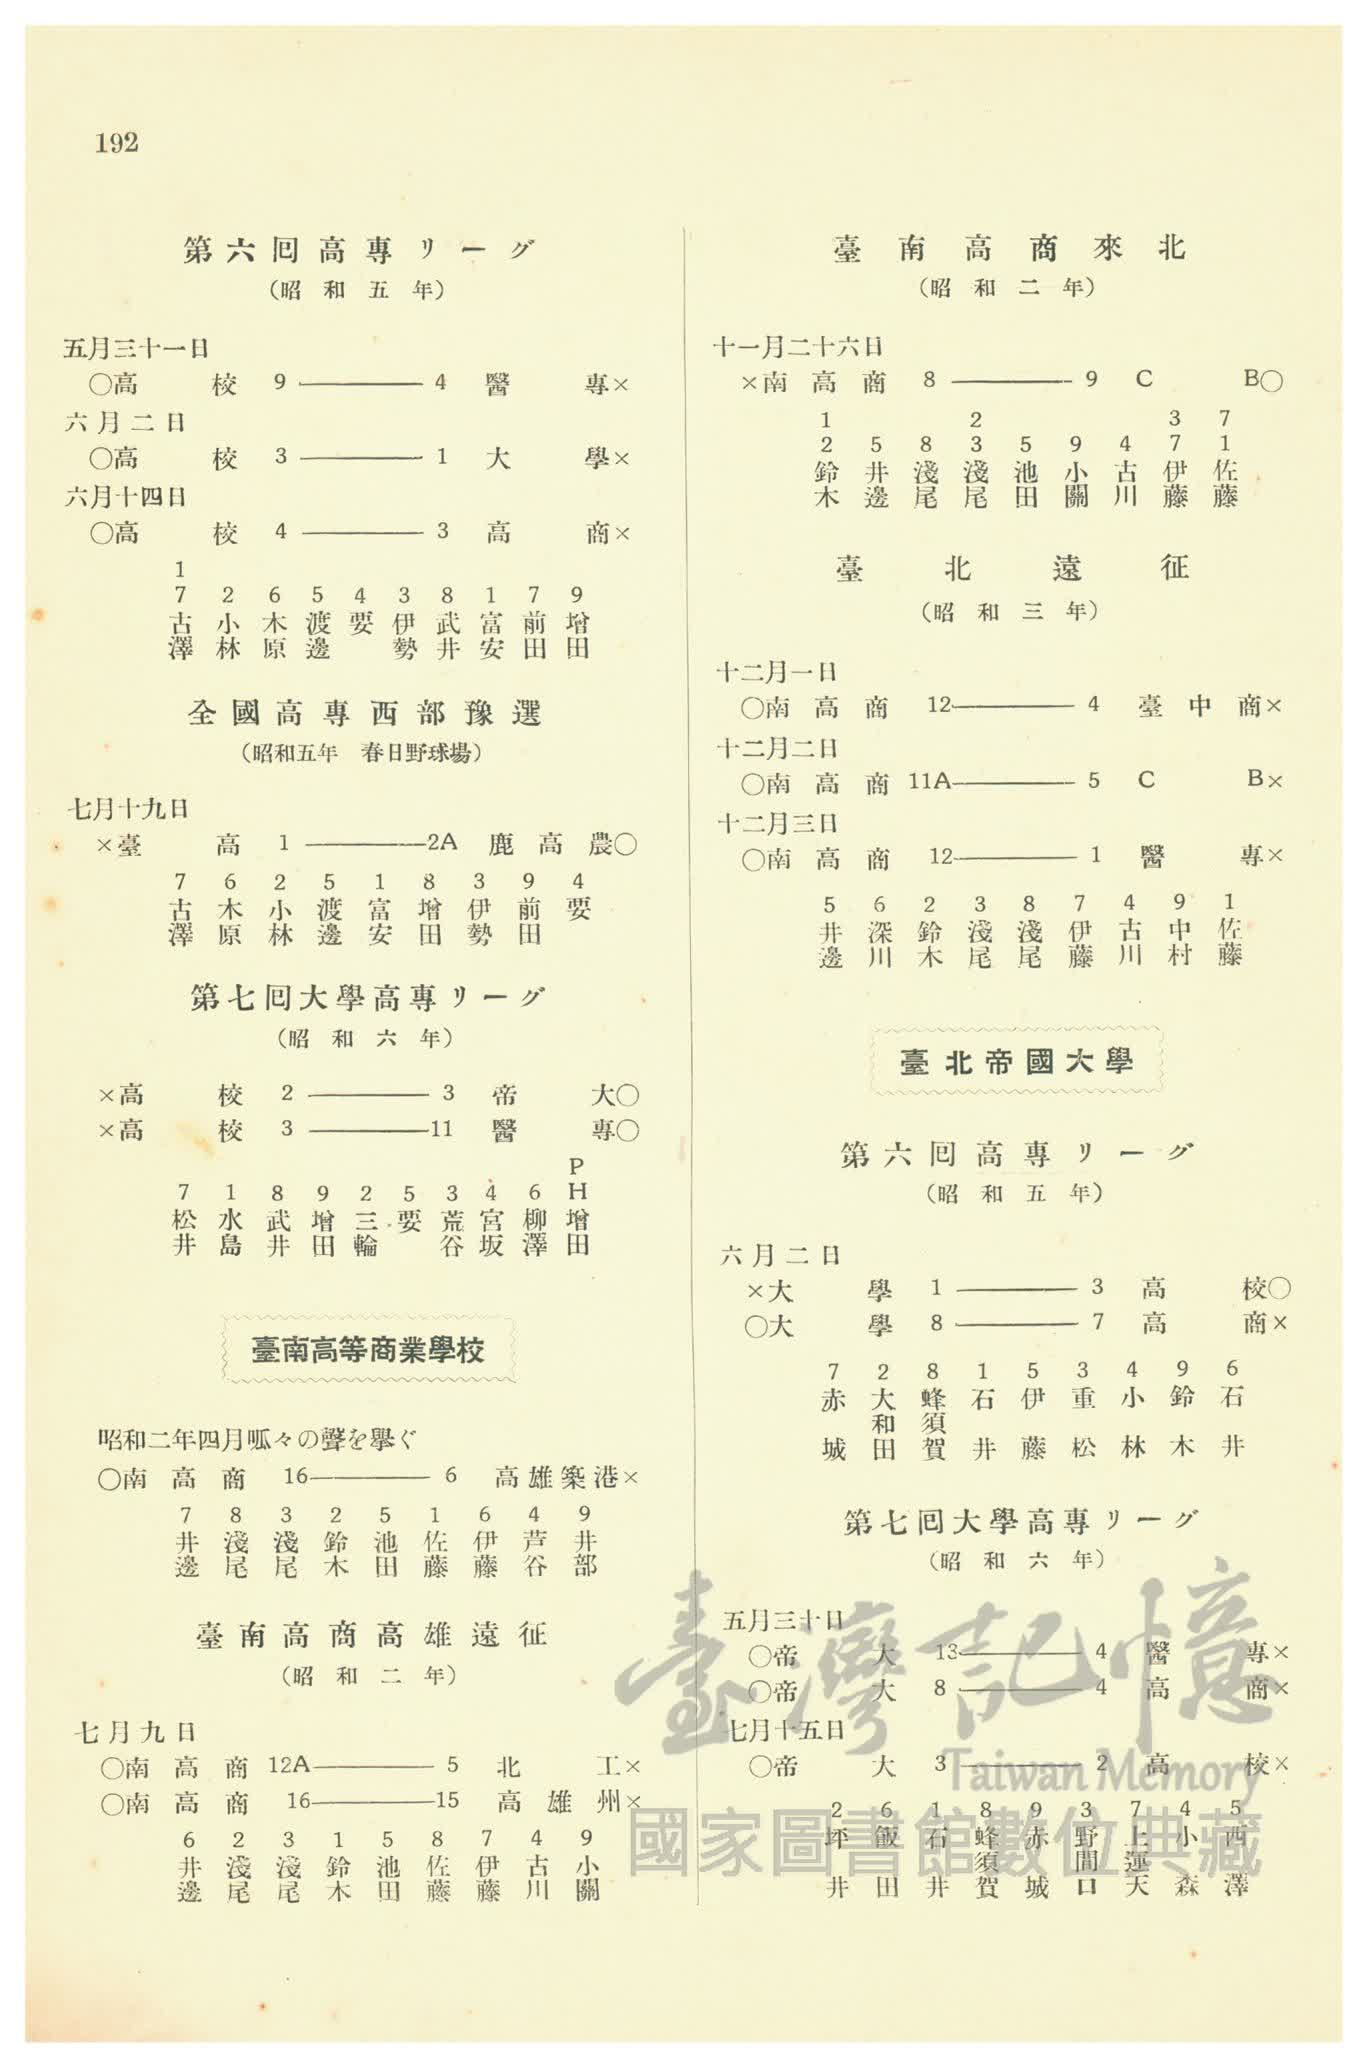 192
第六囘高專リーグ
（昭和五年）
五月三十一日
○高校 9 ——— 4 醫專×
六月二日
○高校 3 ——— 1 大學×
六月十四日
○高校 4 ——— 3 高商×
1
7 2 6 5 4 3 8 1 7 9
古 小 木 渡 要 伊 武 富 前 增
澤 林 原 邊 勢 井 安 田 田
全國高專西部豫選
（昭和五年 春日野球場）
七月十九日
×臺高 1 ——— 2A 鹿高農○
7 6 2 5 1 8 3 9 4
古 木 小 渡 富 增 伊 前 要
澤 原 林 邊 安 田 勢 田
第七囘大學高專リーグ
（昭和六年）
×高校 2 ——— 3 帝大○
×高校 3 ——— 11 醫專○
P
7 1 8 9 2 5 3 4 6 H
松 水 武 增 三 要 荒 宮 柳 增
井 島 井 田 輪 谷 坂 澤 田
臺南高等商業學校
昭和二年四月呱々の聲を擧ぐ
○南高商 16 ——— 6 高雄築港×
7 8 3 2 5 1 6 4 9
井 淺 淺 鈴 池 佐 伊 芦 井
邊 尾 尾 木 田 藤 藤 谷 部
臺南高商高雄遠征
（昭和二年）
七月九日
○南高商 12A ——— 5 北工×
○南高商 16 ——— 15 高雄州×
6 2 3 1 5 8 7 4 9
井 淺 淺 鈴 池 佐 伊 古 小
邊 尾 尾 木 田 藤 藤 川 關
臺南高商來北
（昭和二年）
十一月二十六日
×南高商 8 ——— 9 CB○
1 2 3 7
2 5 8 3 5 9 4 7 1
鈴 井 淺 淺 池 小 古 伊 佐
木 邊 尾 尾 田 關 川 藤 藤
臺北遠征
（昭和三年）
十二月一日
○南高商 12 ——— 4 臺中商×
十二月二日
○南高商 11A ——— 5 CB×
十二月三日
○南高商 12 ——— 1 醫專×
5 6 2 3 8 7 4 9 1
井 深 鈴 淺 淺 伊 古 中 佐
邊 川 木 尾 尾 藤 川 村 藤
臺北帝國大學
第六囘高專リーグ
（昭和五年）
六月二日
×大學 1 ——— 3 高校○
○大學 8 ——— 7 高商×
7 2 8 1 5 3 4 9 6
赤 大 蜂 石 伊 重 小 鈴 石
和 須
城 田 賀 井 藤 松 林 木 井
第七囘大學高專リーグ
（昭和六年）
五月三十日
○帝大 13 ——— 4 醫專×
○帝大 8 ——— 4 高商×
七月十五日
○帝大 3 ——— 2 高校×
2 6 1 8 9 3 7 4 5
坪 飯 石 蜂 赤 野 上 小 西
須 間 運
井 田 井 賀 城 口 天 森 澤
臺灣記憶
Taiwan Memory
國家圖書館數位典藏